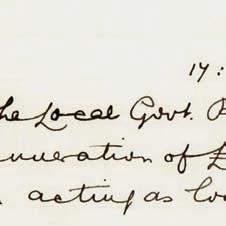 17:
he Local Govt.
uneration of £
acting as loc